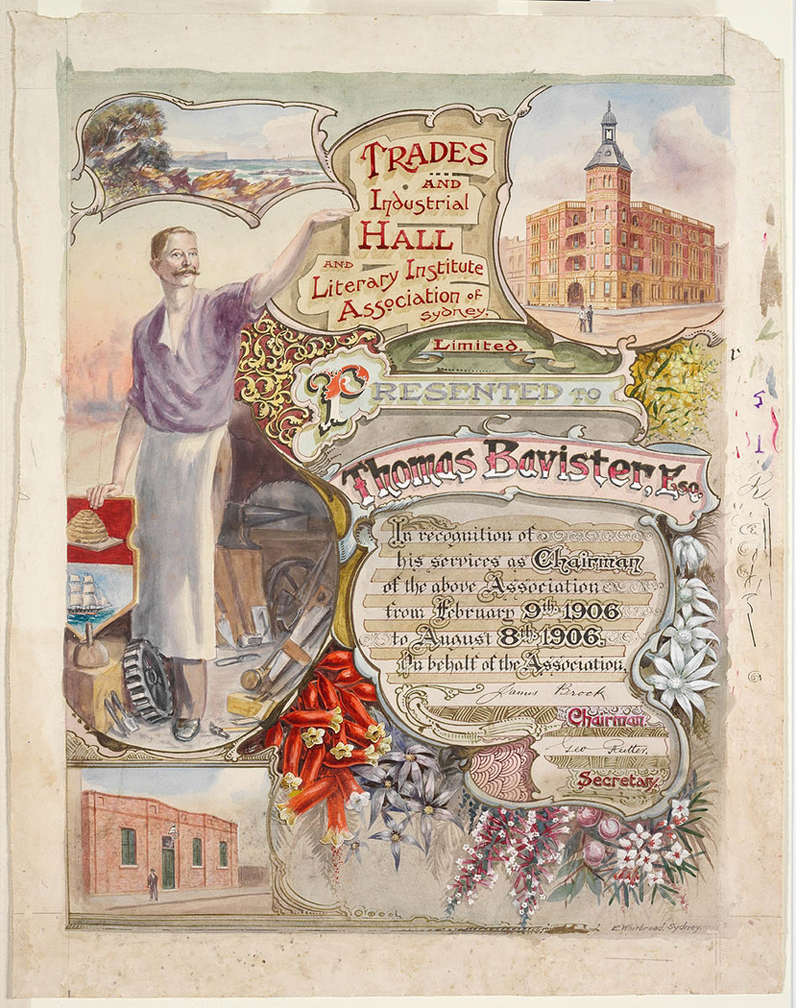 TRADES
AND
Industrial
HALL
AND
Literary Institute
Association of
Sydney.
Limited.
PRESENTED TO
Thomas Bavister, Esq.
In recognition of
his services as Chairman
of the above Association
from February 9th 1906
to August 8th 1906.
On behalf of the Association,
James Brook
Chairman.
Geo Rutter,
Secretary.
Sydney.